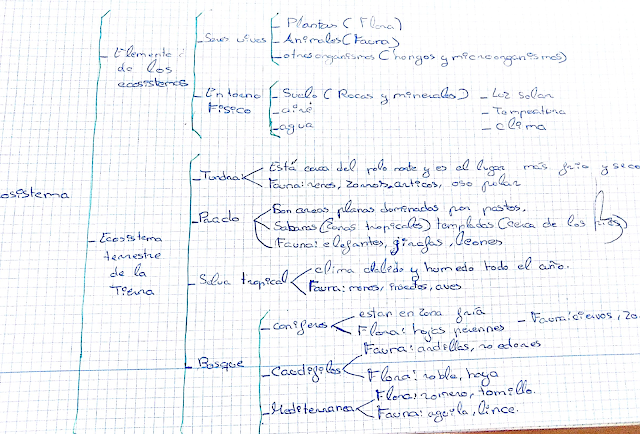 - Plantas (Flora)
- Elementos - Seres vivos - Animales (Fauna)
de los - otros organismos (hongos y microorganismos)
ecosistemas
- Entorno - Suelo (Rocas y minerales) - Luz solar
Físico - aire - Temperatura
- agua - clima
osistema
- Ecosistema
terrestre
de la
Tierra
- Tundra - Está cerca del polo norte y es el lugar más frío y seco
Fauna: renos, zorros articos, oso polar
- Prado - Son areas planas dominadas por pastos.
Sabanas (zonas tropicales) templadas (cerca de los
Fauna: elefantes, girafas, leones
- Selva tropical - clima calido y humedo todo el año.
Fauna: monos, insectos, aves
- Bosque
- coniferos - estan en zona fría
Flora: hojas perennes - Fauna: ciervos, zo
- Caducifolios - Fauna: ardillas, roedores
Flora: roble, haya
- Mediterranea - Flora: romero, tomillo.
Fauna: aguila, lince.